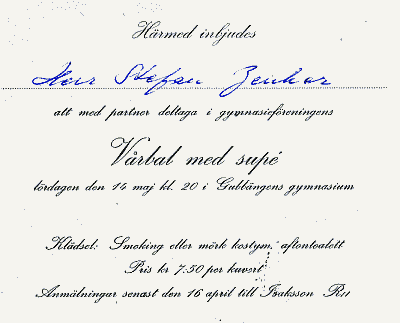 Härmed inbjudes
Herr Stefan Zenker
att med partner deltaga i gymnasieföreningens
Vårbal med supé
lördagen den 14 maj kl. 20 i Gubbängens gymnasium
Klädsel: Smoking eller mörk kostym, aftontoalett
Pris kr 7:50 per kuvert
Anmälningar senast den 16 april till Isaksson R11